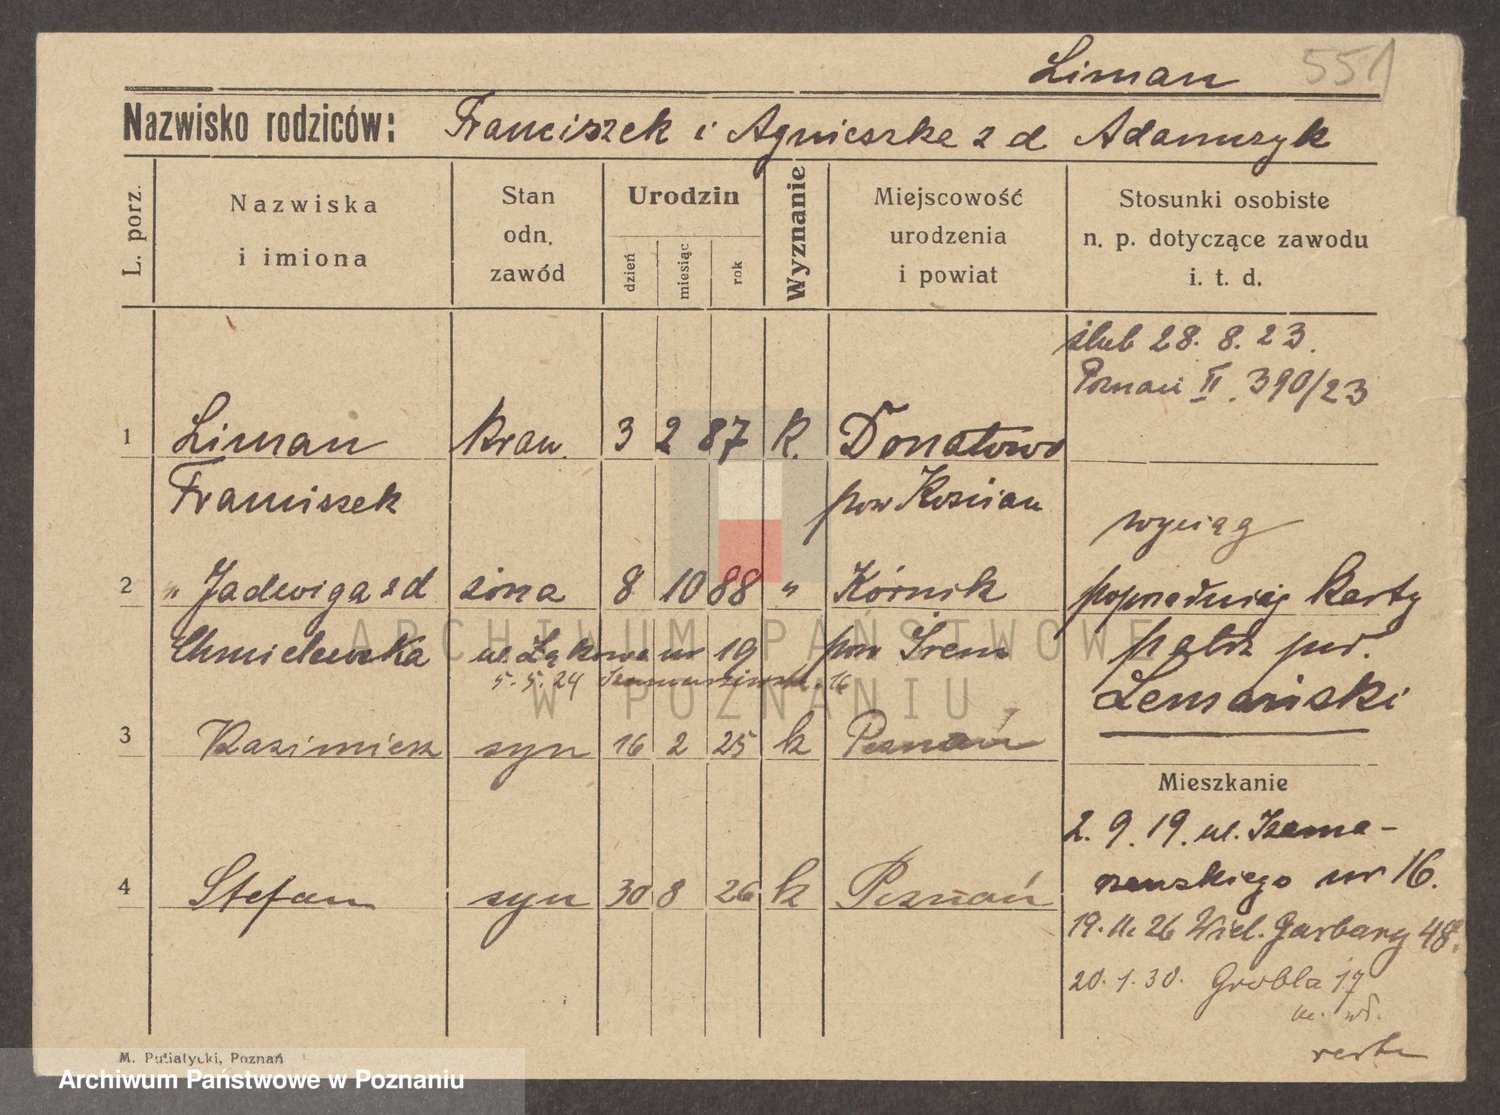 Liman 551
Nazwisko rodziców: Franciszek i Agnieszka z d Adamczyk
L. porz.
Nazwiska
i imiona
Stan
odn.
zawód
Urodzin
dzień
miesiąc
rok
Wyznanie
Miejscowość
urodzenia
i powiat
Stosunki osobiste
n. p. dotyczące zawodu
i. t. d.
ślub 28. 8. 23.
Poznań II. 390/23
1 Liman kraw. 3 2 87 k. Donatowo
Franciszek pow Kościan
wyciąg
2 „ Jadwiga z d żona 8 10 88 „ Kórnik
poprzedniej karty
Chmielewska ul. Łąkowa nr 19 pow Śrem
patrz
5. 5. 24 16
Lemański
3 Kazimierz syn 16 2 25 k Poznań
Mieszkanie
2. 9. 19. ul.
nr 16.
4 Stefan syn 30 8 26 k Poznań
19. 11. 26 Wiel. Garbary 48.
20. 1. 30. Grobla 17
M. Putiatycki, Poznań
ARCHIWUM PAŃSTWOWE
W POZNANIU
Archiwum Państwowe w Poznaniu